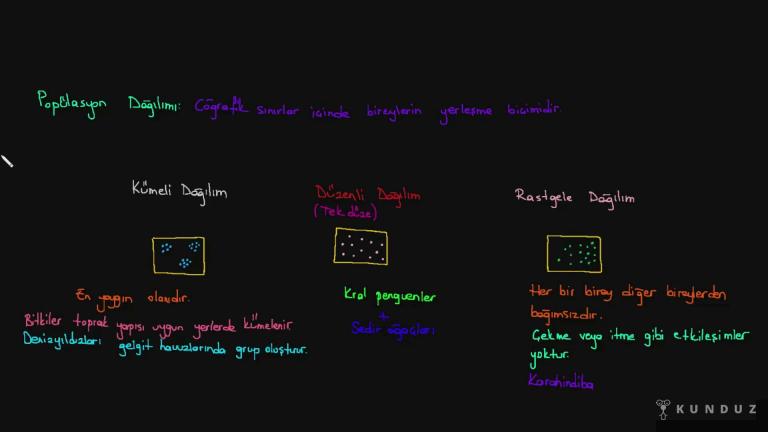 Popülasyon Dağılımı: Coğrafik sınırlar içinde bireylerin yerleşme biçimidir.
Kümeli Dağılım
En yaygın olanıdır.
Bitkiler toprak yapısı uygun yerlerde kümelenir
Denizyıldızları gelgit havuzlarında grup oluşturur.
Düzenli Dağılım
(Tek düze)
Kral penguenler
+
Sedir ağaçları
Rastgele Dağılım
Her bir birey diğer bireylerden
bağımsızdır.
Çekme veya itme gibi etkileşimler
yoktur.
Karahindiba
KUNDUZ